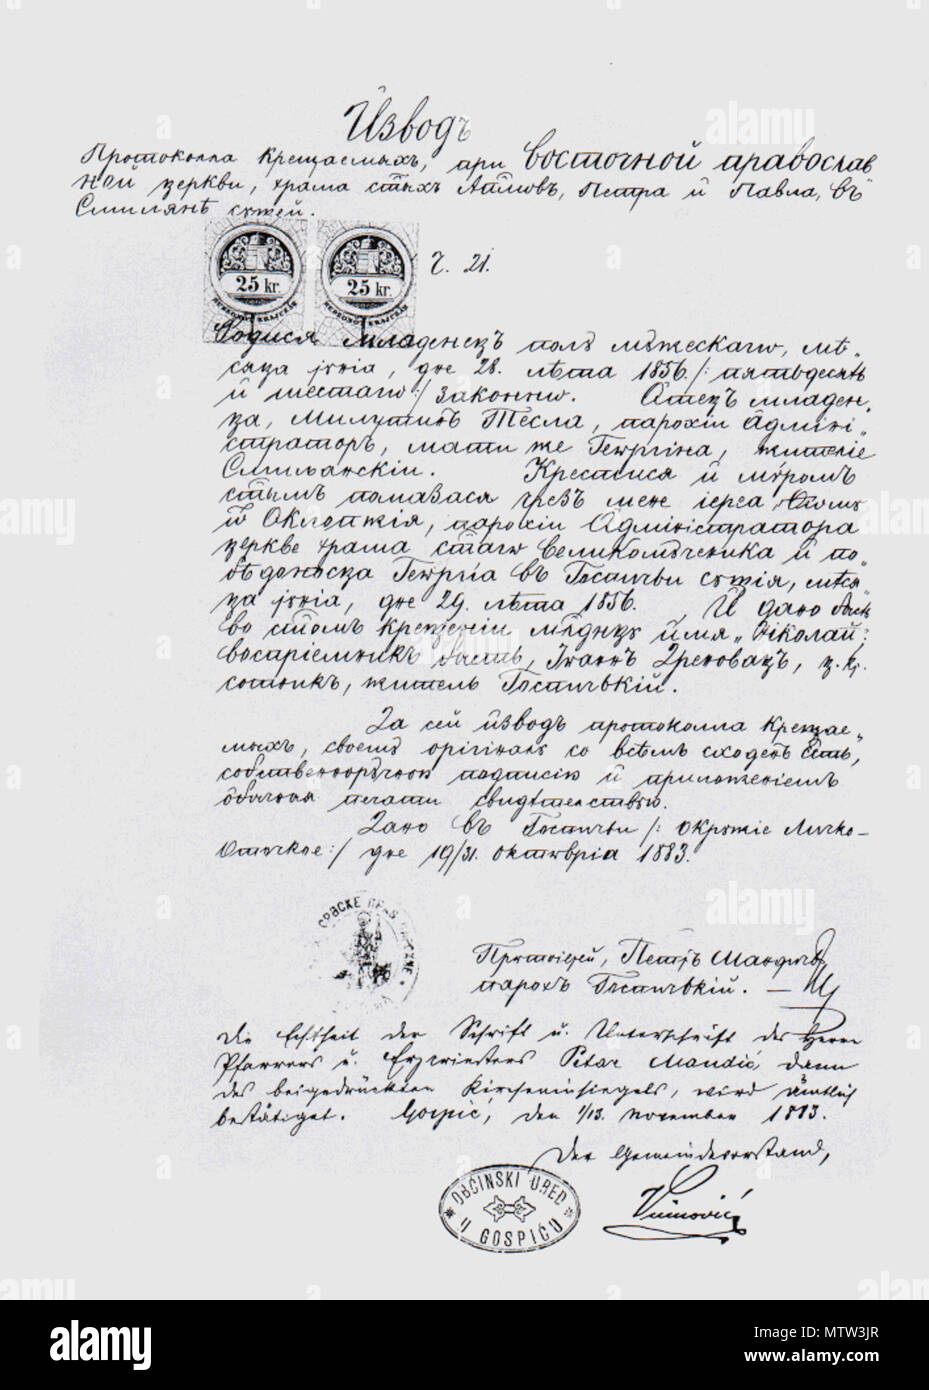 Изводъ
Протоколла крещаемыхъ, при Восточной православ
ной церкви, храма стыхъ Апл҃овъ, Петра и Павла, въ
Смилянѣ сущей.
25 kr. 25 kr. ч. 21.
Родися младенецъ полꙋ мꙋжескагѡ, мѣ„
сяца јунїа, дне 28. лѣта 1856. /: пятьдесятъ
и шестагѡ :/ законнѡ. Отецъ младен„
ца, Милутинъ Тесла, парохїи Адмінї„
страторъ, мати же Геѡргіна, жителїе
Смилянскїи. Крестися и мѵромъ
стымъ помазася чрезъ мене іереа
Оклопжїя, парохїи Адміністратора
церкве храма стагѡ великомꙋченика и по„
бѣдоносца Геѡргїа въ Госпичьи сущїя, мѣся„
ца јунїа, дне 29. лѣта 1856. И дано бысть
во стомъ крещенїи младенцꙋ имя „Нїколай:
воспрїемникъ бысть, Іоаннъ Дреновацъ, ц. кр.
сотникъ, житель Госпичькїй.
За сей изводъ протоколла крещае„
мыхъ, своемꙋ орїгіналꙋ со всѣмъ сходенъ быть,
собственнорꙋчною подписїю и приложенїемъ
обычныя печати свидѣтельствꙋю.
Дано въ Госпичьи /: окружіе Личко-
Оточкое :/ дне 19/31. октѡврїа 1883.
СРБСКЕ ПРАВ
Протоіерей, Петръ Мандичъ
парохъ Госпичькїй. —
Die Echtheit der Schrift u. Unterschrift des Herrn
Pfarrers u. Erzpriesters Petar Mandić, dann
des beigedrückten Kircheninsiegels, wird ämtlich
bestätiget. Gospić, den 1/13. November 1883.
Der Gemeindevorstand,
OBĆINSKI URED
U GOSPIĆU
alamy
Image ID: MTW3JR
www.alamy.com